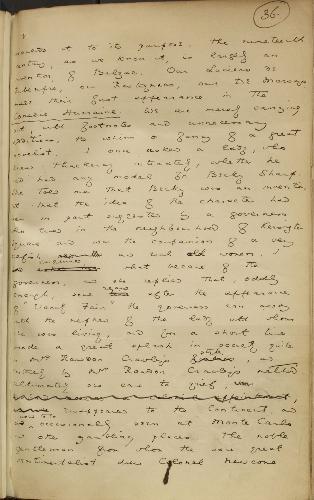 36.
moulds it to its purpose. The nineteenth
century, as we know it, is largely an
invention of Balzac. Our Luciens de
Rubempré, our Rastignacs, and De Marsays
made their first appearance in the
Comédie Humaine. We are merely carrying
out with footnotes and unnecessary
additions, the whim or fancy of a great
novelist. I once asked a lady, who
knew Thackeray intimately, whether he
had had any model for Becky Sharp.
She told me that Becky was an invention,
but that the idea of the character had
been in part suggested by a governess
who lived in the neighbourhood of Kensington
Square and was the companion of a very
selfish and rich old woman. I
inquired what became of the
governess, and she replied that, oddly
enough, some years after the appearance
of Vanity Fair, the governess ran away
with the nephew of the lady with whom
she was living, and for a short time
made a great splash in society, quite
in Mrs Rawdon Crawley's style, and
entirely by Mrs Rawdon Crawley's methods.
Ultimately she came to grief,
disappeared to the Continent, and
used to be
occasionally seen at Monte Carlo
and other gambling places. The noble
gentleman from whom the same great
sentimentalist drew Colonel Newcome